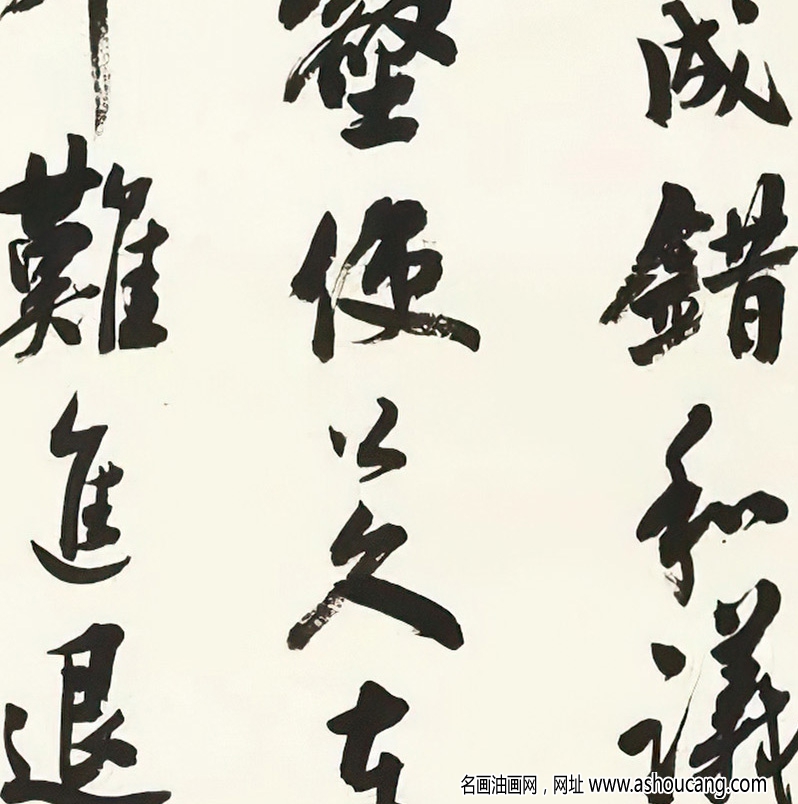 成錯和議
壑便公久在
難進退
名画油画网，网址 www.ashoucang.com